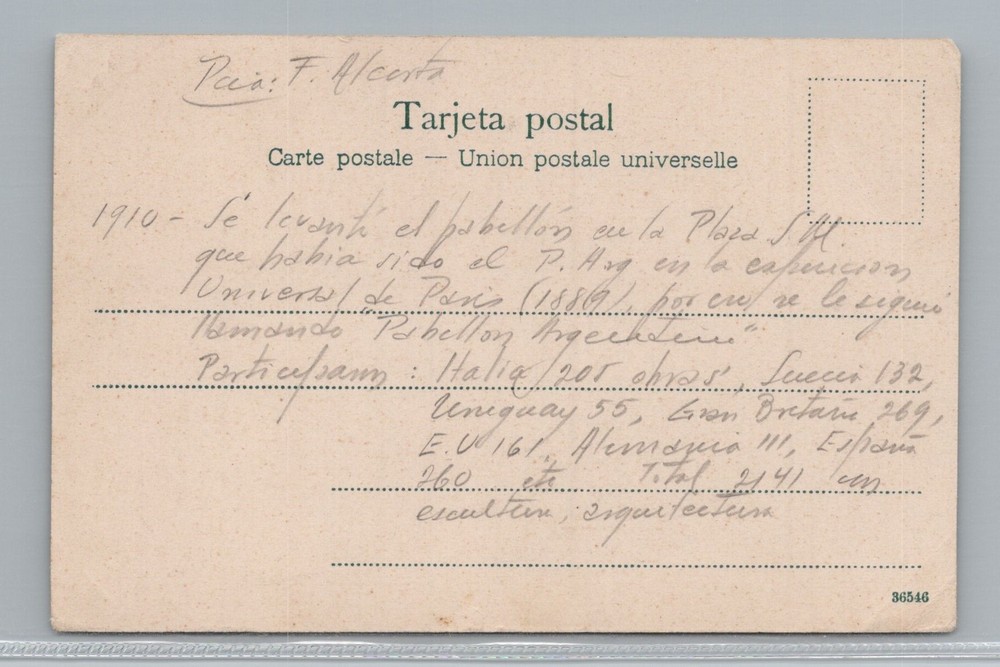 Pcia: F. Alcorta
Tarjeta postal
Carte postale — Union postale universelle
1910 - Se levantó el pabellón en la Plaza S.M.
que habia sido el P. Arg en la exposicion
Universal de Paris (1889), por eso se le seguió
llamando "Pabellon Argentino"
Participaron : Italia 205 obras, Suecia 132,
Uruguay 55, Gran Bretaña 269,
E.U 161, Alemania 111, España
260 etc Total 2141 en
escultura, arquitectura
36546